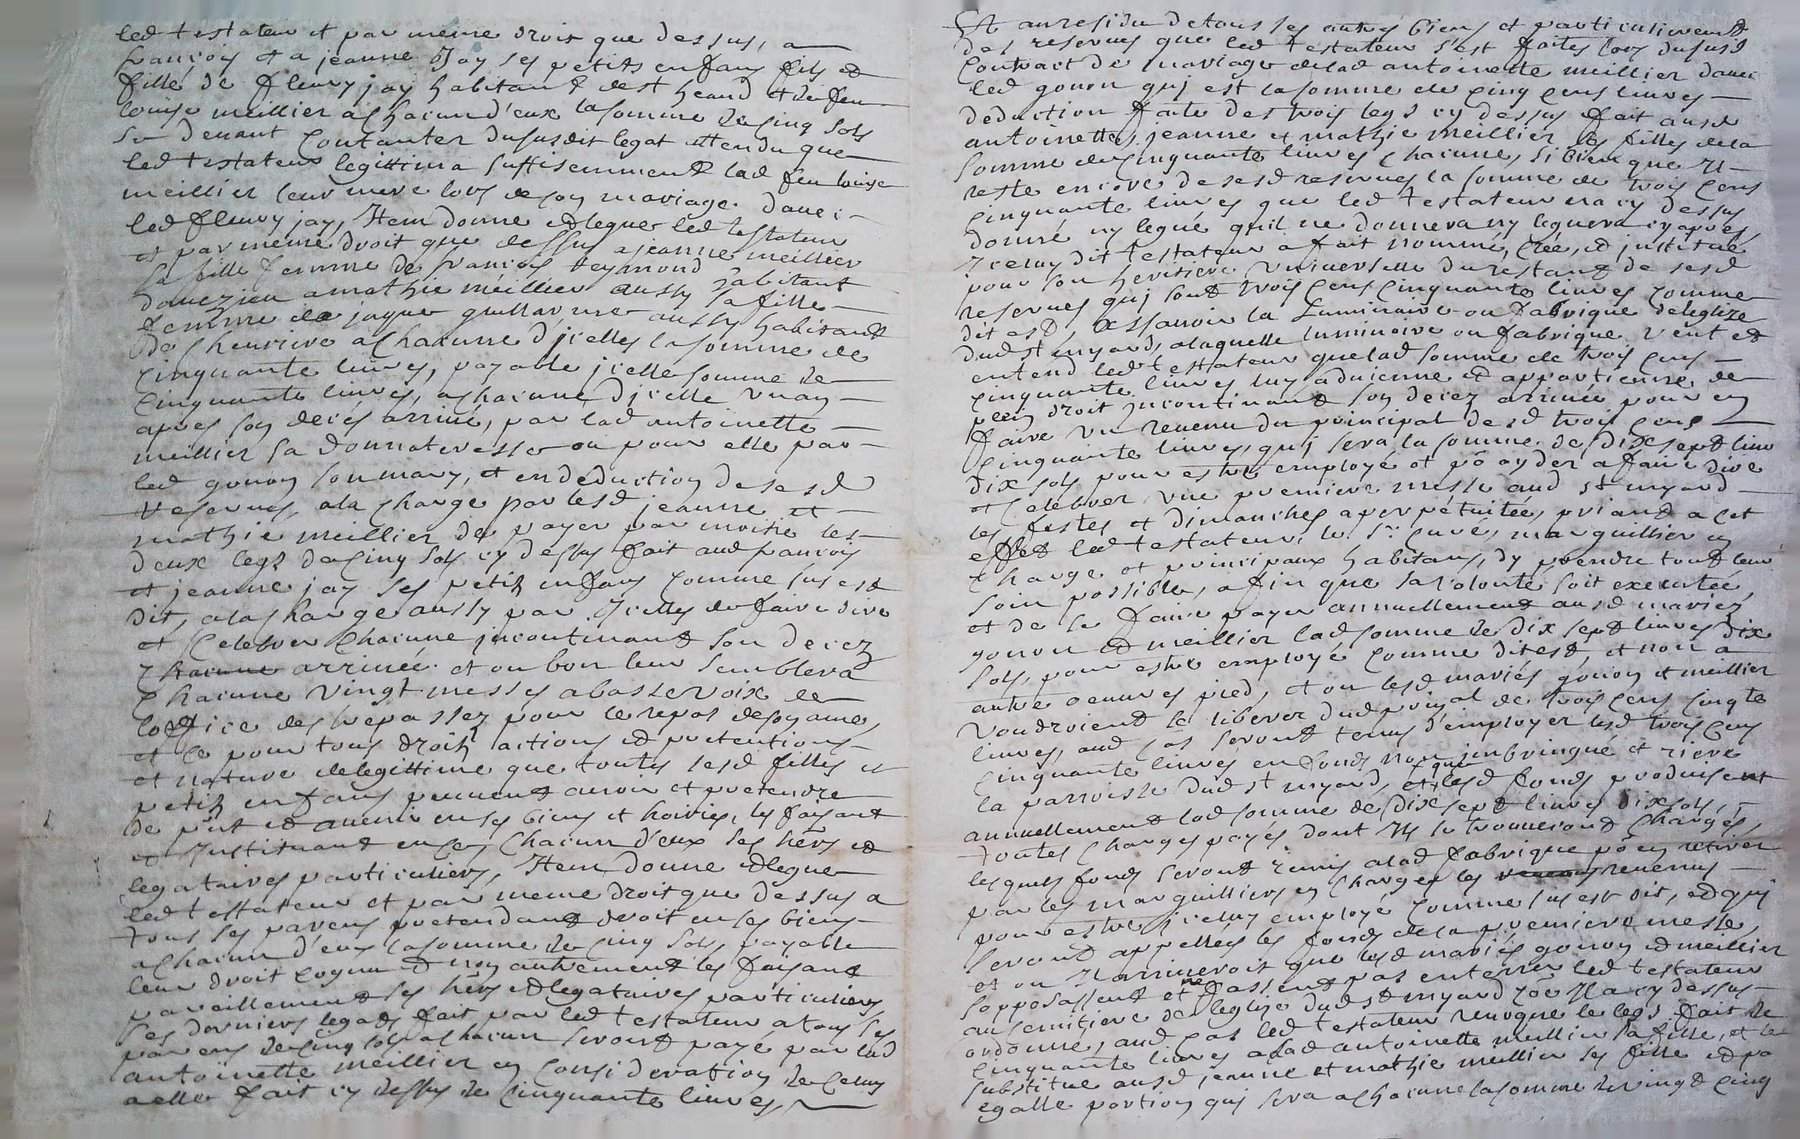 led testateur et par meme droit que dessus, a
françois et a jeanne Jay ses petits enfans fils et
fille de fleury jay habitant de st heand et de feu
louise meillier a chacun d'eux la somme de cinq sols
se devant contanter dususdit legat attendu que
led testateur legittima suffisemment lad feu louise
meillier leur mere lors de son mariage. Avec
led fleury jay, Item donne et legue led testateur
et par meme droit que dessus a jeanne meillier
sa fille femme de françois Reymond habitant
daveizieu a mathie meillier aussy sa fille
femme de jaque guillaume aussy habitant
de chevrive a chacune d'jcelles la somme de
cinquante livres, payable jcelle somme de
cinquante livres, a chacune d'jcelle un an
apres son decés arrivé, par lad antoinette
meillier sa donnateresse ou pour elle par
led gonon son mary, et en deduction de sesd
reserves, a la charge par lesd jeanne et
mathie meillier de payer par moitié les
deux legs de cinq sols cy dessus fait aud françois
et jeanne jay ses petits enfans comme sus est
dit, a la charge aussy par Jcelles de faire dire
et celebrer chacune jncontinant son decez
arrivée et ou bon leur semblera
chacune vingt messes a basse voix de
loffice des trepassez pour le repos de son ame,
et ce pour tous droits actions et pretentions
et nature de legittime que toutes sesd filles et
petits enfans peuvent avoir et pretendre
de p'nt et avenir en ses biens et hoiries, les faisant
et Jnstituant en ce, chacun d'eux ses hers et
legataires particuliers, Item donne et legue
led testateur et par meme droit que dessus a
tous ses parens pretendant droit en ses biens
a chacun d'eux la somme de cinq sols, payable
leur droit cognu et non autrement les faisant
pareillement ses hers et legataires particuliers
ses derniers legats fait par led testateur a tous ses
parens de cinq sols a chacun seront payé par lad
antoinette meillier en consideration de celuy
a elle fait cy dessus de cinquante livres,
Et au residu de tous ses autres biens et particulierement
des reserves que led testateur s'est faites lors dususd
contract de mariage de lad antoinette meillier avec
led gonon quj est la somme de cinq cens livres
deduction faite des trois legs cy dessus fait ausd
antoinette, jeanne et mathie meillier ses filles de la
somme de cinquante livres chacune, si bien que Jl
reste encore de sesd reserves la somme de trois cens
cinquante livres que led testateur n'a cy dessus
donné ny legué quil ne donnera ny leguera cy apres,
Jceluy dit testateur a fait nommé, créé, et jnstitué
pour son heritiere universelle du restant de sesd
reserves quj sont trois cens cinquante livres comme
dit est, a sçavoir la Luminaire ou fabrique de leglize
dud st myard, a laquelle luminaire ou fabrique veut et
entend led testateur que lad somme de trois cens
cinquante livres luy advienne et appartienne de
plein droit jncontinant son decez arrivée pour en
faire un revenu du principal desd trois cens
cinquante livres, quj sera la somme de dix sept livre
dix sols pour estre employé et po ayder a faire dire
et celebrer une premiere messe aud st myard
les festes et dimanches a perpétuitée, priant a cet
effet led testateur, le Sr. curé, marguilliers en
charge et principaux habitans, d'y prendre tout leur
soin possible, afin que sa volonté soit executée,
et de se faire payer annuellement ausd mariez
gonon et meillier lad somme de dix sept livres dix
sols, pour estre employé comme dit est, et non a
autre oeuvres pied, et ou lesd mariés gonon et meillier
voudroient se liberer dud prinçal de trois cens cinqte
livres, aud cas seront tenus d'employer lesd trois cens
cinquante livres en fonds non jmbringué et riere
la parroisse dud st myard, et que lesd fonds produisent
annuellement lad somme de dix sept livres dix sols,
toutes charges payés dont Jls se trouveront chargés,
lesquels fonds seront remis a lad fabrique po en retirer
par les marguilliers en charges les revenus
pour estre jceluy employé comme sus est dit, et quj
seront appellés les fonds de la premiere messe,
et ou Jl arriveroit que lesd mariés gonon et meillier
s'opposassent et ne fassent pas enterrer led testateur
au semitiere de leglize dud st myard Jl a cy dessus
ordonné, aud cas led testateur revoque le legs fait de
cinquante livres a lad antoinette meillier sa fille, et le
substitue ausd jeanne et mathie meillier ses filles et po
egalle portion quj sera a chacune la somme de vingt cinq